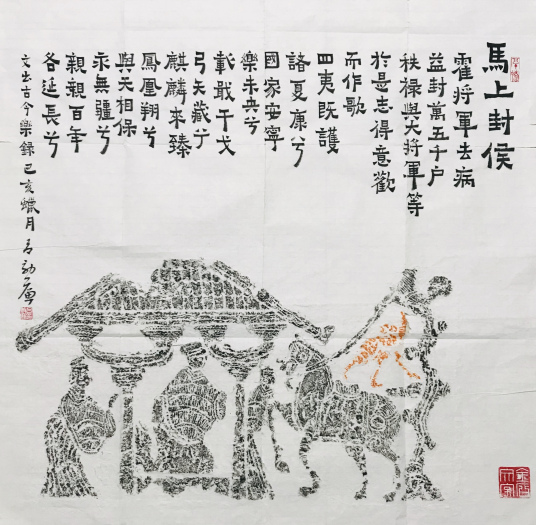 馬上封侯
霍将軍去病
益封萬五千户
秩禄與大将軍等
於是志得意歡
而作歌
四夷既護
諸夏康兮
國家安寧
樂未央兮
載戢干戈
弓矢藏兮
麒麟來臻
鳳凰翔兮
與天相保
永無疆兮
親親百年
各延長兮
文出古今樂録己亥蠟月